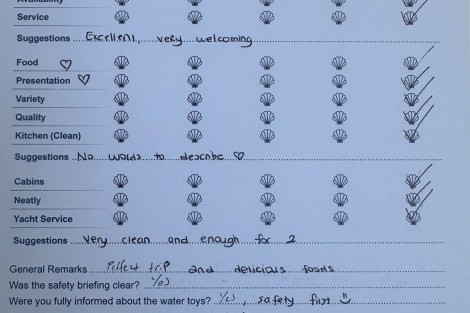 Availability
Service
Suggestions Excellent, very welcoming
Food ♡
Presentation ♡
Variety
Quality
Kitchen (Clean)
Suggestions No words to describe ♡
Cabins
Neatly
Yacht Service
Suggestions Very clean and enough for 2
General Remarks Perfect trip and delicious foods
Was the safety briefing clear? Yes
Were you fully informed about the water toys? Yes, safety first